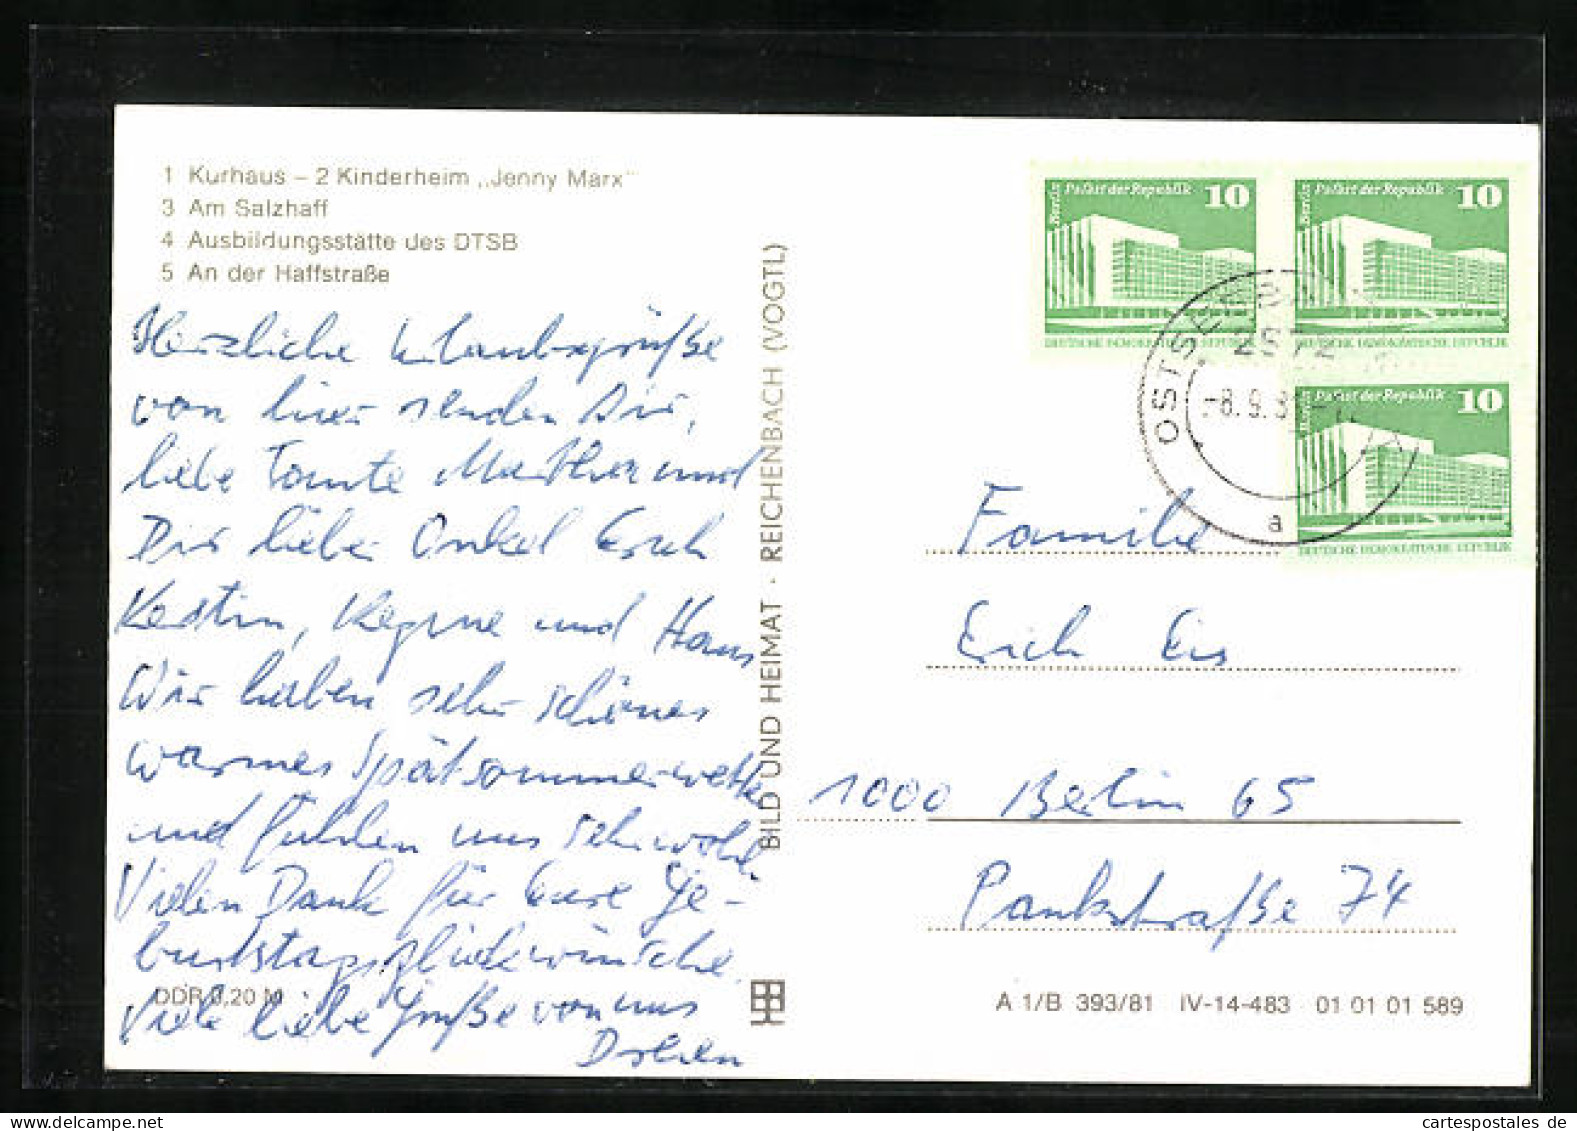 1 Kurhaus – 2 Kinderheim „Jenny Marx"
3 Am Salzhaff
4 Ausbildungsstätte des DTSB
5 An der Haffstraße
Herzliche Urlaubsgrüße
von hier senden Dir,
liebe Tante Martha und
Dir lieber Onkel Erich
Kerstin, und Hans
Wir haben sehr schönes
warmes Spätsommerwetter
und fühlen uns sehr wohl.
Vielen Dank für Eure Ge-
burtstagsglückwünsche.
Viele liebe Grüße von uns
DDR 0,20 M
BILD UND HEIMAT · REICHENBACH (VOGTL)
Berlin Palast der Republik 10
DEUTSCHE DEMOKRATISCHE REPUBLIK
Berlin Palast der Republik 10
DEUTSCHE DEMOKRATISCHE REPUBLIK
Berlin Palast der Republik 10
DEUTSCHE DEMOKRATISCHE REPUBLIK
OSTSEEB
-8.9.8
a
Familie
Erich Eis
1000 Berlin 65
Pankstraße 74
A 1/B 393/81 IV-14-483 01 01 01 589
cartespostales.de